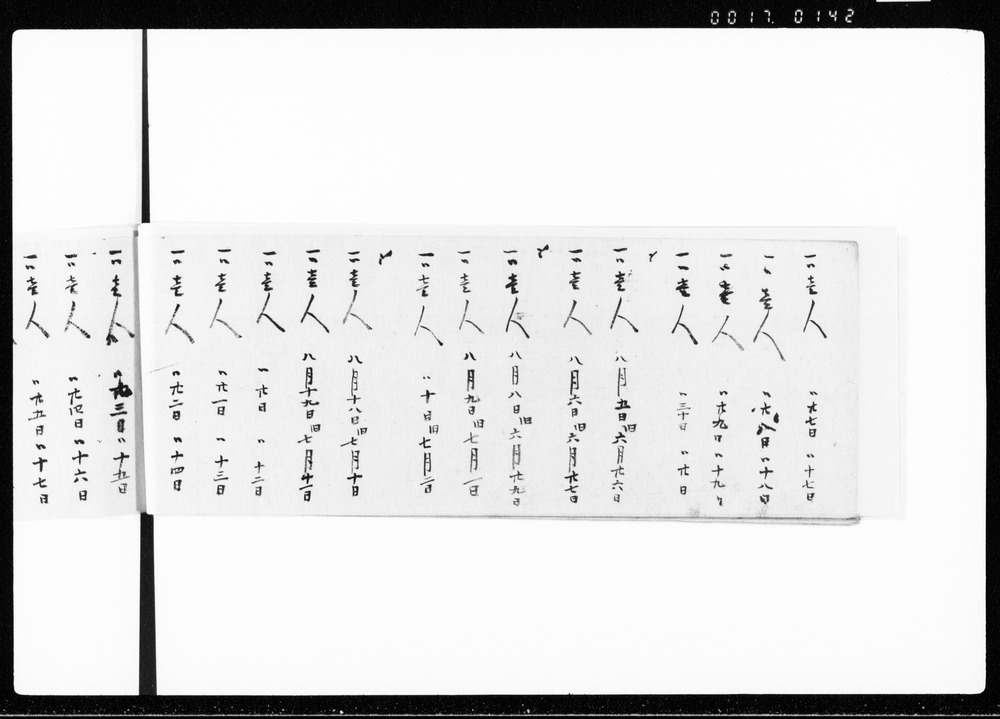 0017. 0142
一〃壱人 〃廿七日 〃十七日
一〃壱人 〃廿八日 〃十八日
一〃壱人 〃廿九日 〃十九日
一〃壱人 〃三十日 〃廿日
一〃壱人 八月五日旧六月廿六日
一〃壱人 八月六日旧六月廿七日
一〃壱人 八月八日旧六月廿九日
一〃壱人 八月九日旧七月一日
一〃壱人 〃十日旧七月二日
一〃壱人 八月十八日旧七月十日
一〃壱人 八月十九日旧七月十一日
一〃壱人 〃廿日 〃十二日
一〃壱人 〃廿一日 〃十三日
一〃壱人 〃廿二日 〃十四日
一〃壱人 〃廿三日 〃十五日
一〃壱人 〃廿四日 〃十六日
一〃壱人 〃廿五日 〃十七日